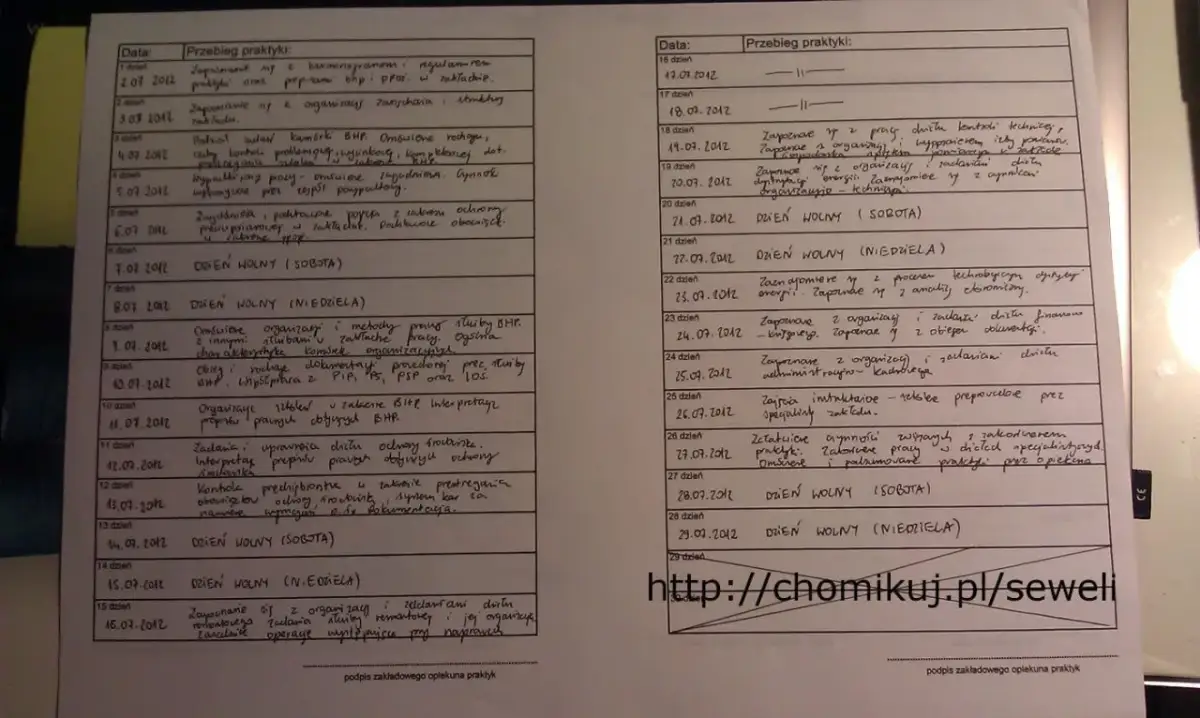 Data: Przebieg praktyki:
1 dzień
2.07 2012 Zapoznanie się z harmonogramem i regulaminem
praktyki oraz przepisami BHP i PPOŻ. w zakładzie.
2 dzień
3.07 2012 Zapoznanie się z organizacją zarządzania i strukturą
zakładu.
3 dzień
4.07 2012 komórki BHP. Omówienie rodzaju,
kontroli problemowej, wycinkowej, kompleksowej dot.
w zakresie BHP.
4 dzień
5.07 2012 Wypadki przy pracy - omówienie zagadnienia. Czynności
wykonywane przez zespół powypadkowy.
5 dzień
6.07 2012 Zagadnienia i podstawowe pojęcia z zakresu ochrony
przeciwpożarowej w zakładzie. Podstawowe obowiązki
w zakresie ppoż.
6 dzień
7.07 2012 DZIEŃ WOLNY (SOBOTA)
7 dzień
8.07 2012 DZIEŃ WOLNY (NIEDZIELA)
8 dzień
9.07.2012 Omówienie organizacji i metody pracy służby BHP.
z innymi służbami w zakładzie pracy. Ogólna
charakterystyka komórek organizacyjnych.
9 dzień
10.07.2012 Obieg i rodzaje dokumentacji prowadzonej przez służby
BHP. Współpraca z PIP, PIS, PSP oraz IOŚ.
10 dzień
11.07.2012 Organizacja szkoleń w zakresie BHP. Interpretacja
przepisów prawnych dotyczących BHP.
11 dzień
12.07.2012 Zadania i uprawnienia działu ochrony środowiska.
Interpretacja przepisów prawnych dotyczących ochrony
środowiska
12 dzień
13.07.2012 Kontrola przedsiębiorstw w zakresie przestrzegania
obowiązków ochrony środowiska, system kar za
wymagań o.ś. Dokumentacja.
13 dzień
14.07.2012 DZIEŃ WOLNY (SOBOTA)
14 dzień
15.07.2012 DZIEŃ WOLNY (NIEDZIELA)
15 dzień
16.07.2012 Zapoznanie się z organizacją i zadaniami działu
remontowego. Zadania służby remontowej i jej organizacja.
operacje występujące przy naprawach
podpis zakładowego opiekuna praktyk
Data: Przebieg praktyki:
16 dzień
17.07.2012 — 11 —
17 dzień
18.07.2012 — 11 —
18 dzień
19.07.2012 Zapoznanie się z pracą działu kontroli technicznej,
Zapoznanie z organizacją i wyposażeniem izby pomiarów.
w zakładzie
19 dzień
20.07.2012 Zapoznanie się z organizacją i zadaniami działu
dystrybucji energii. Zaznajomienie się z czynnościami
organizacyjno - technicznymi.
20 dzień
21.07.2012 DZIEŃ WOLNY (SOBOTA)
21 dzień
22.07.2012 DZIEŃ WOLNY (NIEDZIELA)
22 dzień
23.07.2012 Zaznajomienie się z procesem technologicznym dystrybucji
energii. Zapoznanie się z analizą ekonomiczną.
23 dzień
24.07.2012 Zapoznanie z organizacją i zadaniami działu finansowo
- księgowego. Zapoznanie się z obiegiem dokumentacji.
24 dzień
25.07.2012 Zapoznanie z organizacją i zadaniami działu
administracyjno - kadrowego
25 dzień
26.07.2012 Zajęcia instruktażowe - szkolenie prowadzone przez
specjalistę zakładu.
26 dzień
27.07.2012 Załatwienie czynności związanych z zakończeniem
praktyki. Zakończenie pracy w działach specjalistycznych.
Omówienie i podsumowanie praktyki przez opiekuna
27 dzień
28.07.2012 DZIEŃ WOLNY (SOBOTA)
28 dzień
29.07.2012 DZIEŃ WOLNY (NIEDZIELA)
29 dzień
http://chomikuj.pl/seweli
podpis zakładowego opiekuna praktyk